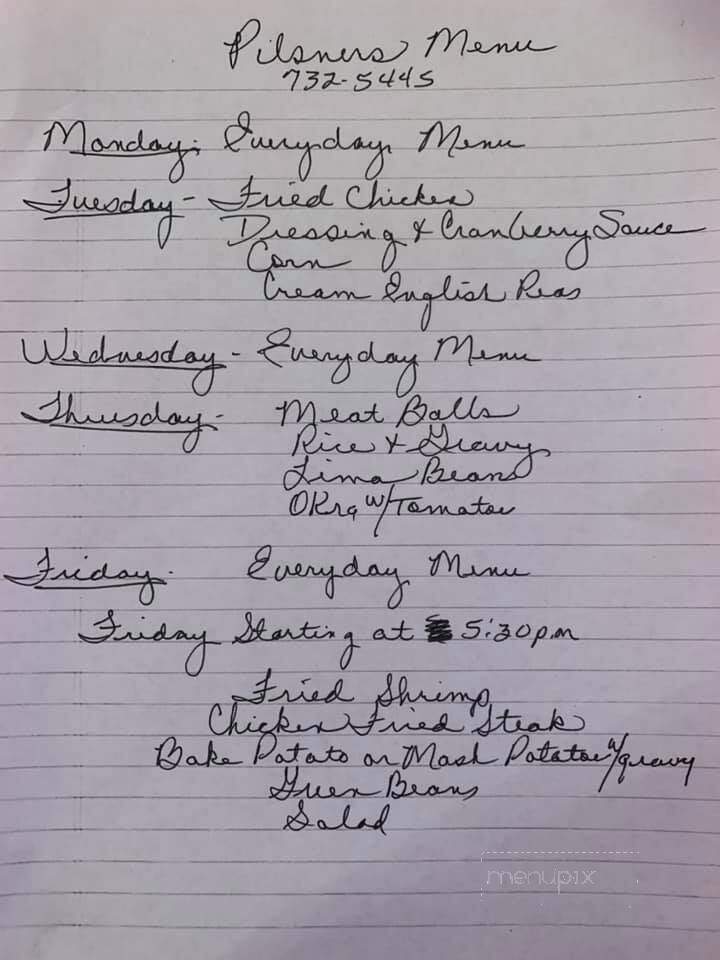 Pilsners Menu
732-5445
Monday: Everyday Menu
Tuesday - Fried Chicken
Dressing & Cranberry Sauce
Corn
Cream English Peas
Wednesday - Everyday Menu
Thursday - Meat Balls
Rice & Gravy
Lima Beans
OKra w/Tomatoe
Friday - Everyday Menu
Friday Starting at 5:30 p.m
Fried Shrimp
Chicken Fried Steak
Bake Potato or Mash Potatoe w/gravy
Green Beans
Salad
menupix